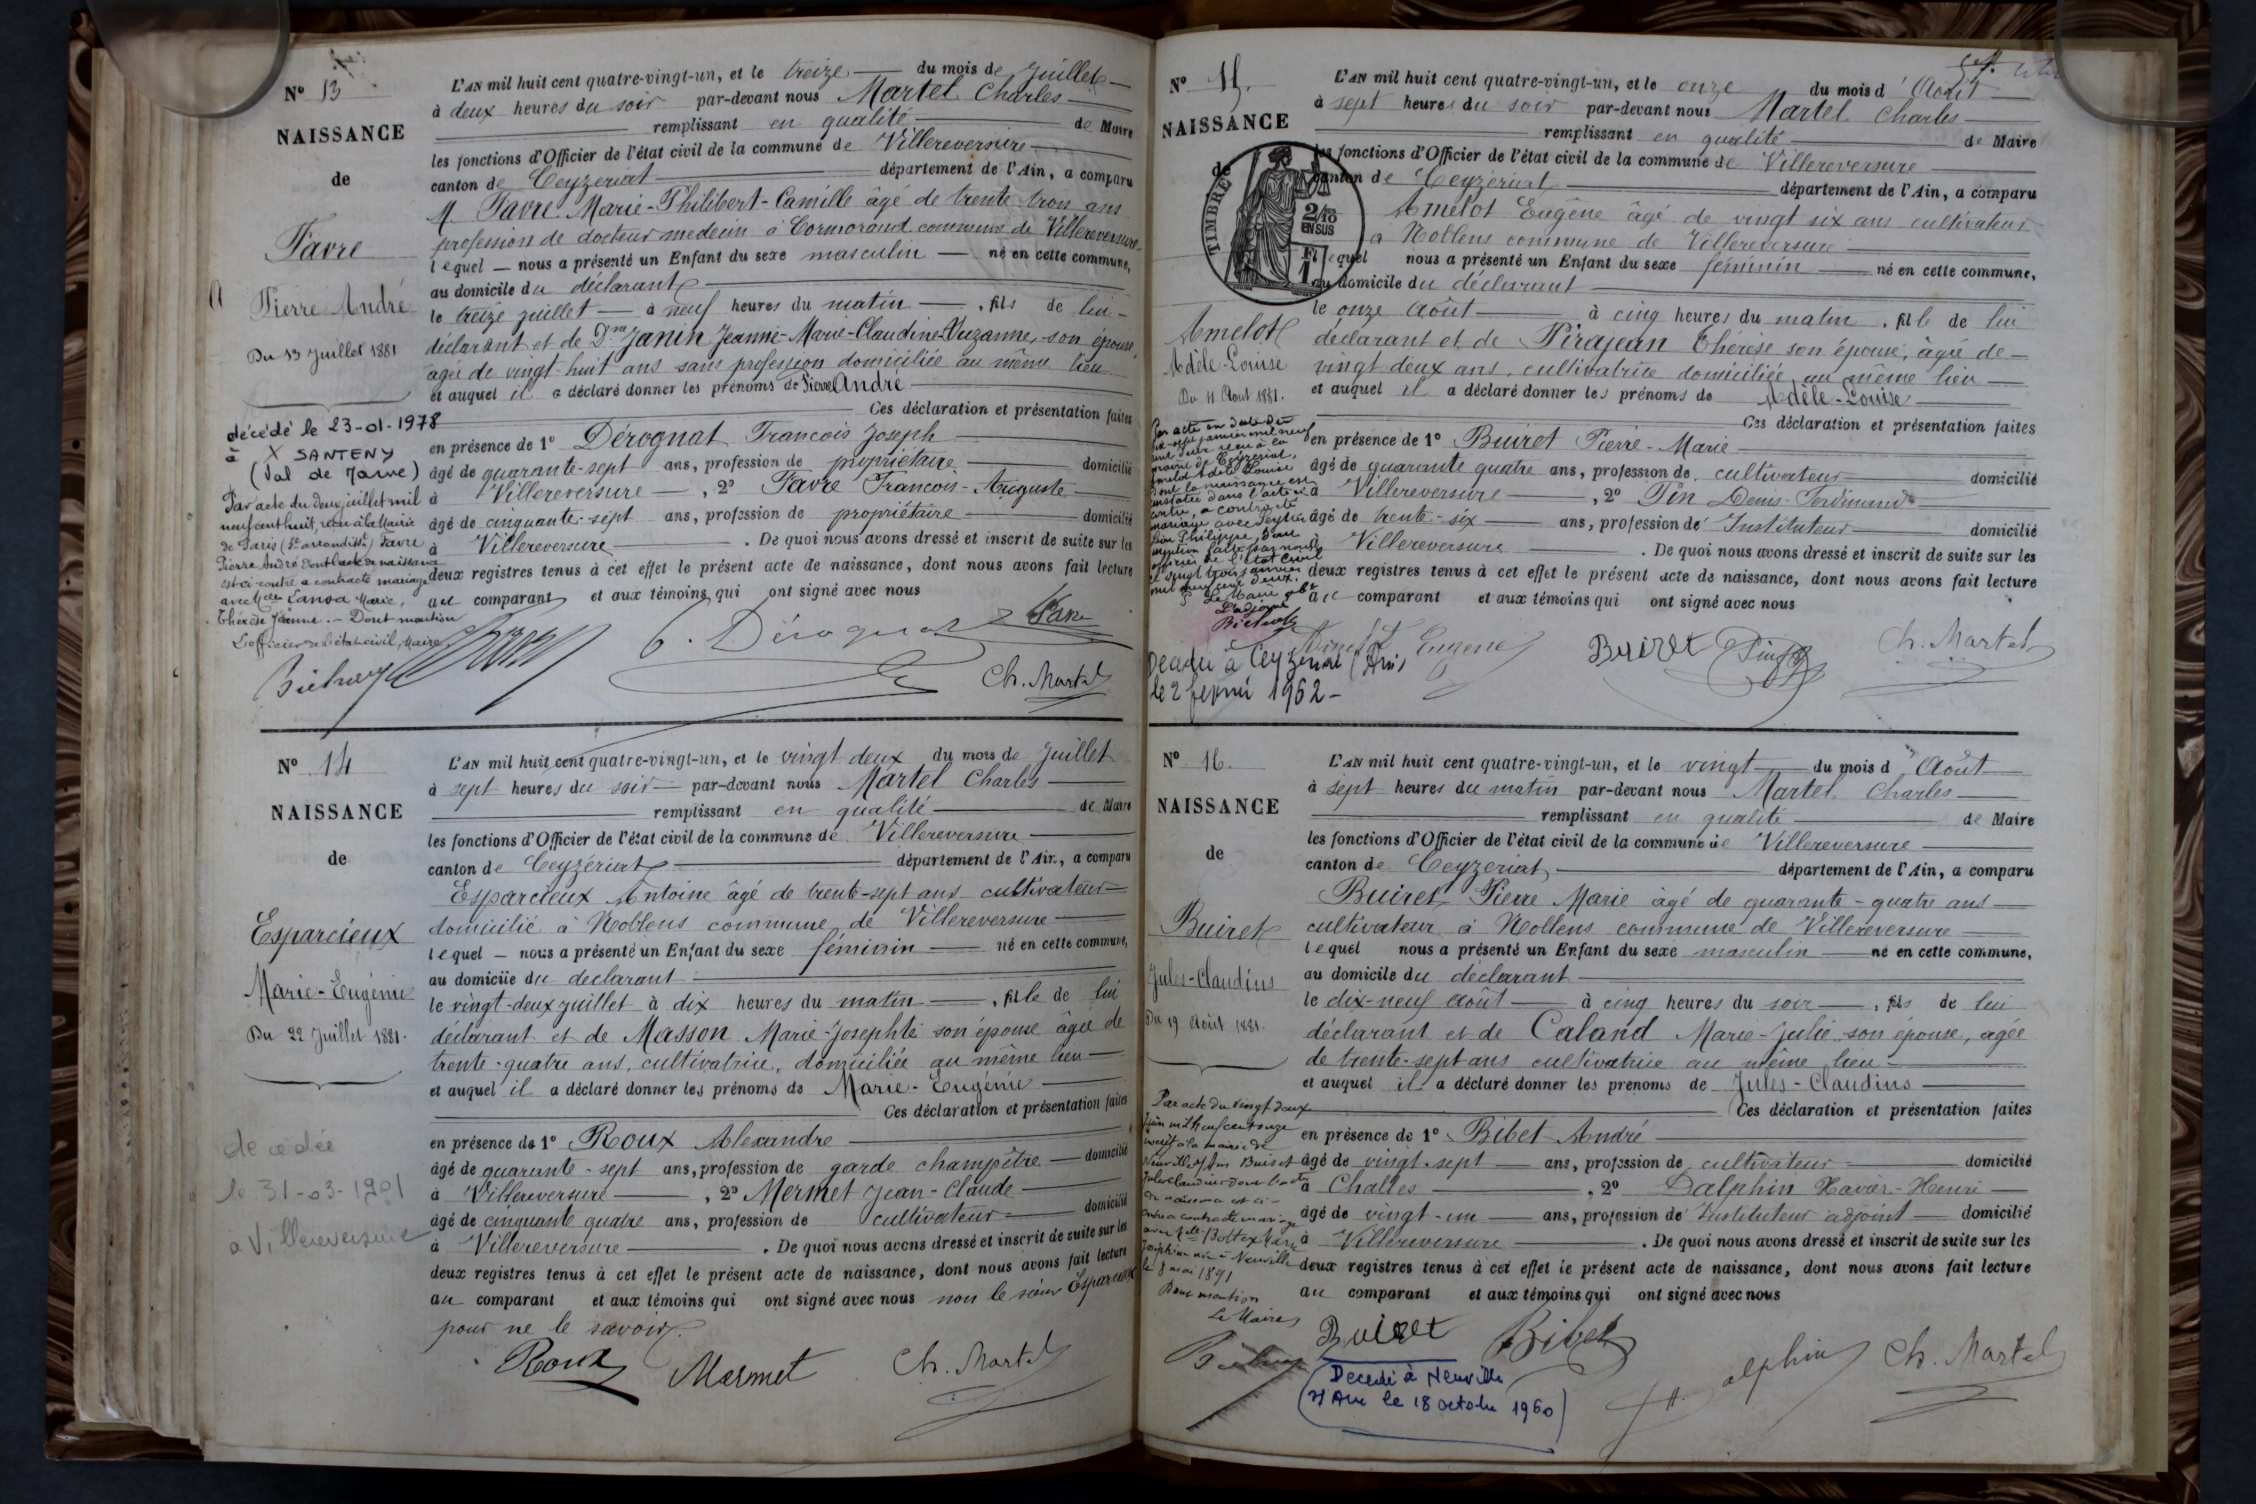 N° 13
NAISSANCE
de
Favre
Pierre André
Du 13 Juillet 1881
décédé le 23-01-1978
à X SANTENY
(Val de Marne)
Par acte du deux juillet mil
neuf cent huit, reçu à la Mairie
de Paris Favre
Pierre André dont l'acte de naissance
est ci-contre a contracté mariage
avec Marie,
Thérèse Jeanne. - Dont mention
L'officier de l'état civil, Maire
L'AN mil huit cent quatre-vingt-un, et le treize du mois de Juillet
à deux heures du soir par-devant nous Martel Charles
remplissant en qualité de Maire
les fonctions d'Officier de l'état civil de la commune de Villereversure
canton de Ceyzeriat département de l'Ain, a comparu
M. Favre Marie-Philibert-Camille âgé de trente trois ans
profession de docteur medecin à Cormorand commune de Villereversure
lequel nous a présenté un Enfant du sexe masculin né en cette commune,
au domicile du déclarant
le treize juillet à neuf heures du matin, fils de lui
déclarant et de Dme Janin Jeanne-Marie-Claudine-Suzanne, son épouse,
agée de vingt-huit ans sans profession domiciliée au même lieu
et auquel il a déclaré donner les prénoms de Pierre André
Ces déclaration et présentation faites
en présence de 1° Dérognat François Joseph
âgé de quarante-sept ans, profession de propriétaire domicilié
à Villereversure, 2° Favre François-Auguste
âgé de cinquante-sept ans, profession de propriétaire domicilié
à Villereversure. De quoi nous avons dressé et inscrit de suite sur les
deux registres tenus à cet effet le présent acte de naissance, dont nous avons fait lecture
au comparant et aux témoins qui ont signé avec nous
Favre
Dérognat
Ch. Martel
N° 14
NAISSANCE
de
Esparcieux
Marie-Eugénie
Du 22 Juillet 1881.
decedée
le 31-03-1901
a Villereversure
L'AN mil huit cent quatre-vingt-un, et le vingt deux du mois de Juillet
à sept heures du soir par-devant nous Martel Charles
remplissant en qualité de Maire
les fonctions d'Officier de l'état civil de la commune de Villereversure
canton de Ceyzériat département de l'Ain, a comparu
Esparcieux Antoine âgé de trente-sept ans cultivateur
domicilié à Noblens commune de Villereversure
lequel nous a présenté un Enfant du sexe féminin né en cette commune,
au domicile du declarant
le vingt-deux juillet à dix heures du matin, fille de lui
déclarant et de Masson Marie-Josephte son épouse âgée de
trente-quatre ans, cultivatrice, domiciliée au même lieu
et auquel il a déclaré donner les prénoms de Marie-Eugénie
Ces déclaration et présentation faites
en présence de 1° Roux Alexandre
âgé de quarante-sept ans, profession de garde champêtre domicilié
à Villereversure, 2° Mermet Jean-Claude
âgé de cinquante quatre ans, profession de cultivateur domicilié
à Villereversure. De quoi nous avons dressé et inscrit de suite sur les
deux registres tenus à cet effet le présent acte de naissance, dont nous avons fait lecture
au comparant et aux témoins qui ont signé avec nous non le sieur Esparcieux
pour ne le savoir.
Roux Mermet Ch. Martel
N° 15.
NAISSANCE
de
TIMBRE
2/10
EN SUS
1
Amelot
Adèle-Louise
Du 11 Aout 1881.
Par acte en date du
dix-sept janvier mil neuf
mairie de Ceyzeriat,
Amelot Adèle Louise
dont la naissance est
constatée dans l'acte ci-
contre, a contracté
mariage avec
Philippe,
mention faite par nous
officier de l'état civil
le vingt trois janvier
mil neuf cent deux.
Le Maire
L'adjoint
Décédée à Ceyzeriat (Ain)
le 2 février 1962-
L'AN mil huit cent quatre-vingt-un, et le onze du mois d'Août
à sept heures du soir par-devant nous Martel Charles
remplissant en qualité de Maire
les fonctions d'Officier de l'état civil de la commune de Villereversure
canton de Ceyzériat département de l'Ain, a comparu
Amelot Eugène âgé de vingt six ans cultivateur
à Noblens commune de Villereversure
lequel nous a présenté un Enfant du sexe féminin né en cette commune,
au domicile du déclarant
le onze Août à cinq heures du matin, fille de lui
déclarant et de Pirajean Thérèse son épouse, âgée de
vingt deux ans, cultivatrice domiciliée au même lieu
et auquel il a déclaré donner les prénoms de Adèle-Louise
Ces déclaration et présentation faites
en présence de 1° Buiret Pierre-Marie
âgé de quarante quatre ans, profession de cultivateur domicilié
à Villereversure, 2° Pin Denis-Ferdinand
âgé de trente-six ans, profession de Instituteur domicilié
à Villereversure. De quoi nous avons dressé et inscrit de suite sur les
deux registres tenus à cet effet le présent acte de naissance, dont nous avons fait lecture
au comparant et aux témoins qui ont signé avec nous
Amelot Eugene Buiret Pin Ch. Martel
N° 16.
NAISSANCE
de
Buiret
Jules-Claudius
Du 19 Août 1881.
Par acte du vingt deux
Juin mil neuf cent onze
inscrit à la mairie de
Neuville s/ Ain Buiret
Jules Claudius dont l'acte
de naissance est ci-
contre a contracté mariage
avec Melle Bottex Marie
Joséphine née à Neuville
le 8 mai 1891
Dont mention
Le Maire
L'AN mil huit cent quatre-vingt-un, et le vingt du mois d'Août
à sept heures du matin par-devant nous Martel Charles
remplissant en qualité de Maire
les fonctions d'Officier de l'état civil de la commune de Villereversure
canton de Ceyzeriat département de l'Ain, a comparu
Buiret Pierre Marie âgé de quarante-quatre ans
cultivateur à Noblens commune de Villereversure
lequel nous a présenté un Enfant du sexe masculin né en cette commune,
au domicile du déclarant
le dix-neuf Août à cinq heures du soir, fils de lui
déclarant et de Caland Marie-Julie son épouse, agée
de trente-sept ans cultivatrice au même lieu
et auquel il a déclaré donner les prénoms de Jules-Claudius
Ces déclaration et présentation faites
en présence de 1° Bibet André
âgé de vingt-sept ans, profession de cultivateur domicilié
à Challes, 2° Dalphin Xavier-Henri
âgé de vingt-un ans, profession de Instituteur adjoint domicilié
à Villereversure. De quoi nous avons dressé et inscrit de suite sur les
deux registres tenus à cet effet le présent acte de naissance, dont nous avons fait lecture
au comparant et aux témoins qui ont signé avec nous
Buiret Bibet H. Dalphin Ch. Martel
Decedé à Neuville
s/ Ain le 18 octobre 1960